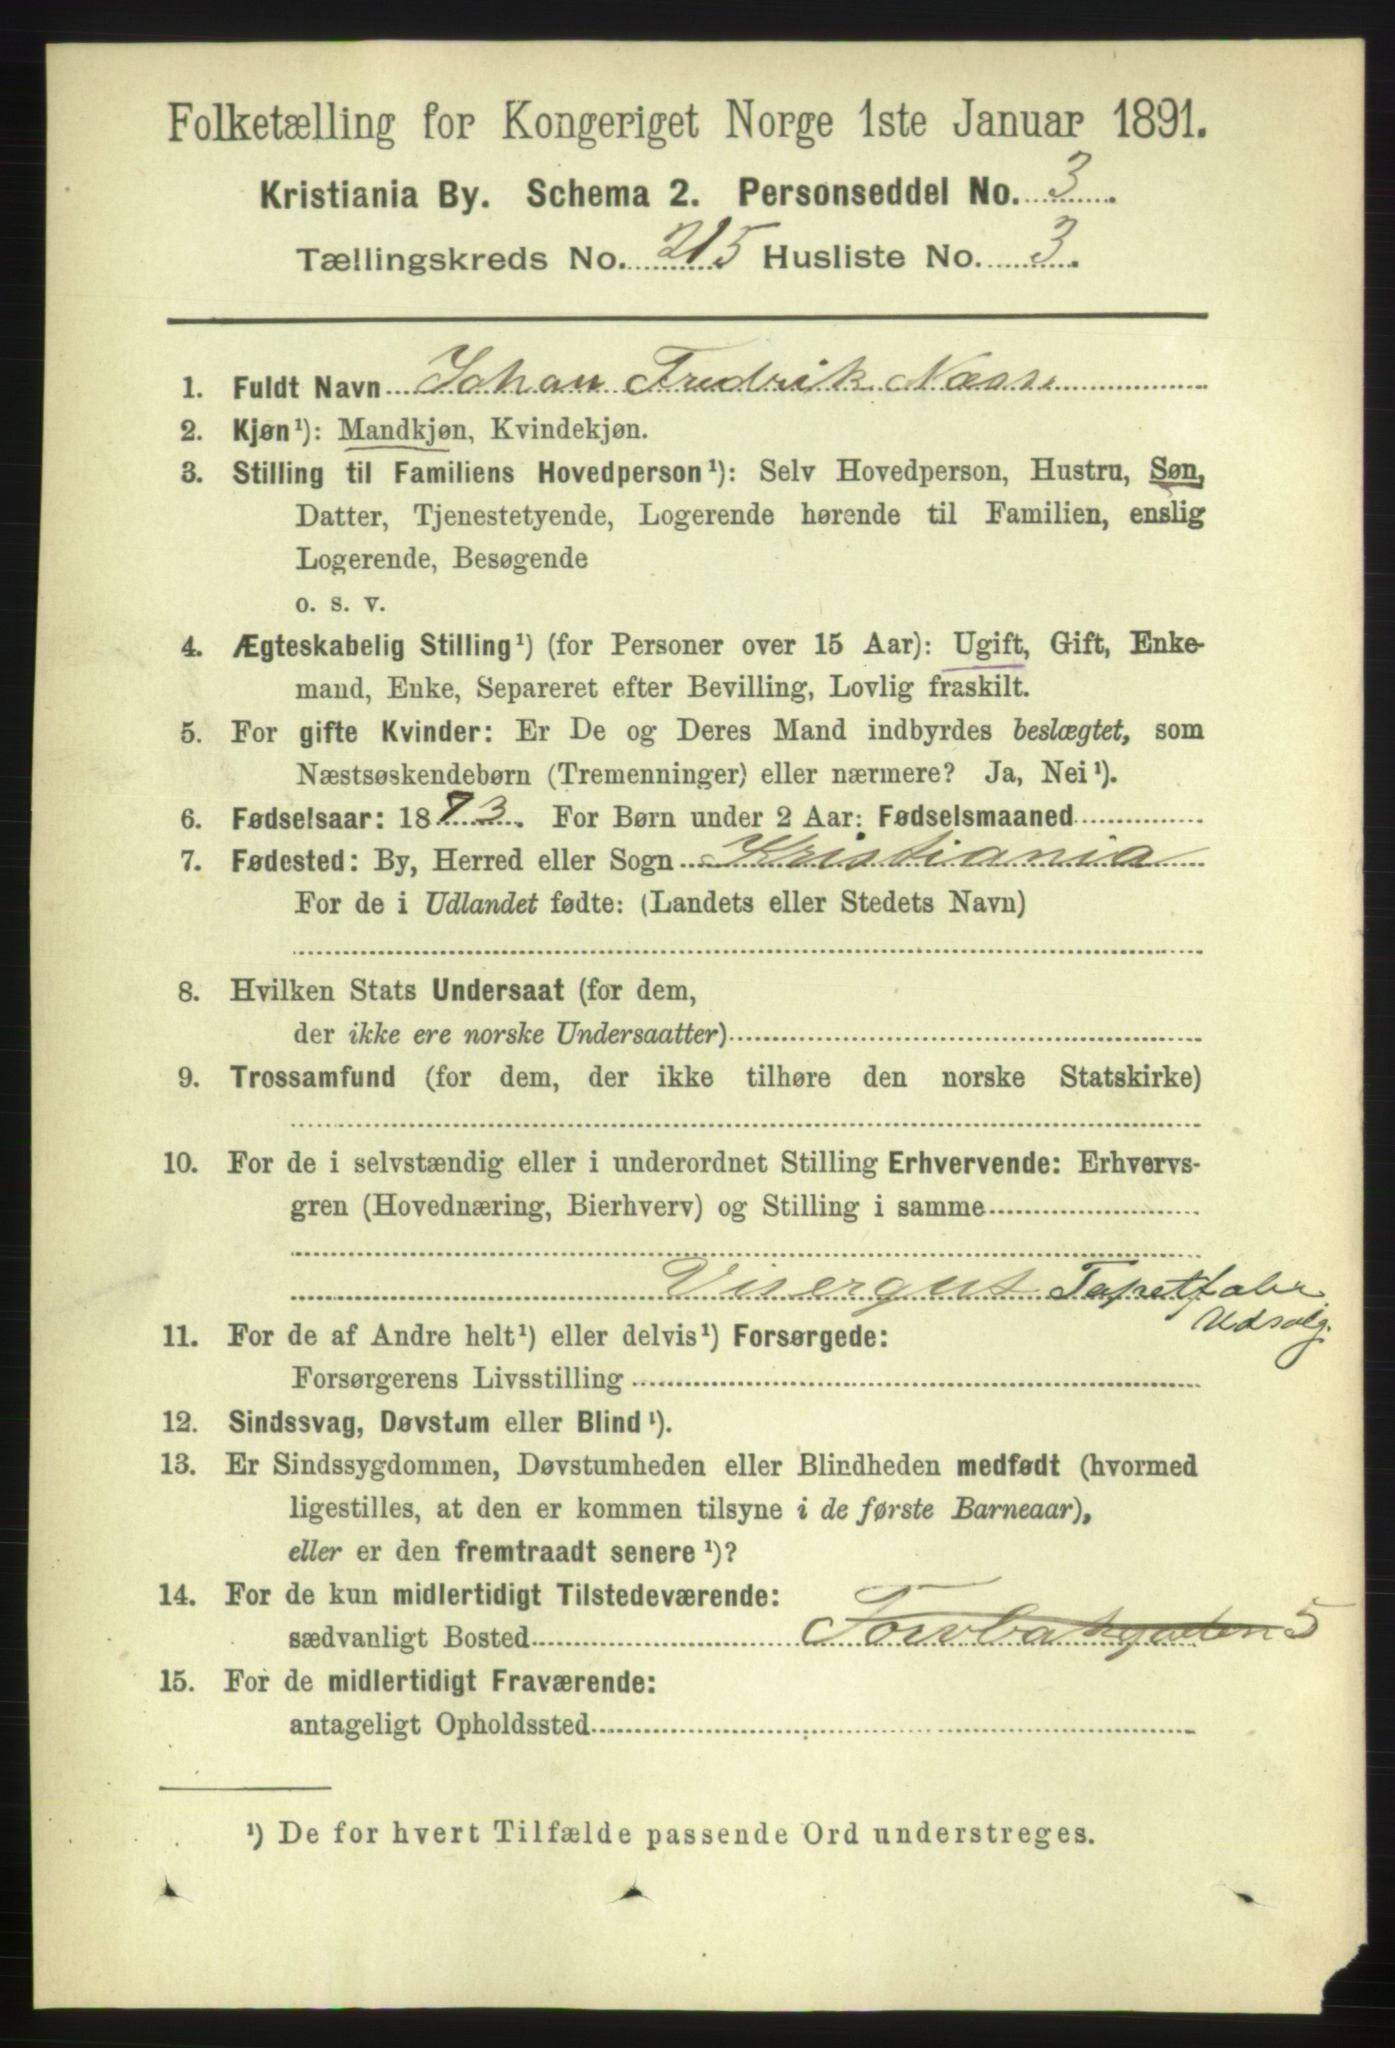 Folketælling for Kongeriget Norge 1ste Januar 1891.
Kristiania By. Schema 2. Personseddel No. 3.
Tællingskreds No. 215 Husliste No. 3.
1. Fuldt Navn Johan Fredrik Næss
2. Kjøn¹): Mandkjøn, Kvindekjøn.
3. Stilling til Familiens Hovedperson¹): Selv Hovedperson, Hustru, Søn,
Datter, Tjenestetyende, Logerende hørende til Familien, enslig
Logerende, Besøgende
o. s. v.
4. Ægteskabelig Stilling¹) (for Personer over 15 Aar): Ugift, Gift, Enke-
mand, Enke, Separeret efter Bevilling, Lovlig fraskilt.
5. For gifte Kvinder: Er De og Deres Mand indbyrdes beslægtet, som
Næstsøskendebørn (Tremenninger) eller nærmere? Ja, Nei¹).
6. Fødselsaar: 1873. For Børn under 2 Aar: Fødselsmaaned
7. Fødested: By, Herred eller Sogn Kristiania
For de i Udlandet fødte: (Landets eller Stedets Navn)
8. Hvilken Stats Undersaat (for dem,
der ikke ere norske Undersaatter)
9. Trossamfund (for dem, der ikke tilhøre den norske Statskirke)
10. For de i selvstændig eller i underordnet Stilling Erhvervende: Erhvervs-
gren (Hovednæring, Bierhverv) og Stilling i samme
Visergut Tapetfabr
Udsalg.
11. For de af Andre helt¹) eller delvis¹) Forsørgede:
Forsørgerens Livsstilling
12. Sindssvag, Døvstum eller Blind¹).
13. Er Sindssygdommen, Døvstumheden eller Blindheden medfødt (hvormed
ligestilles, at den er kommen tilsyne i de første Barneaar),
eller er den fremtraadt senere¹)?
14. For de kun midlertidigt Tilstedeværende:
sædvanligt Bosted 5
15. For de midlertidigt Fraværende:
antageligt Opholdssted
¹) De for hvert Tilfælde passende Ord understreges.